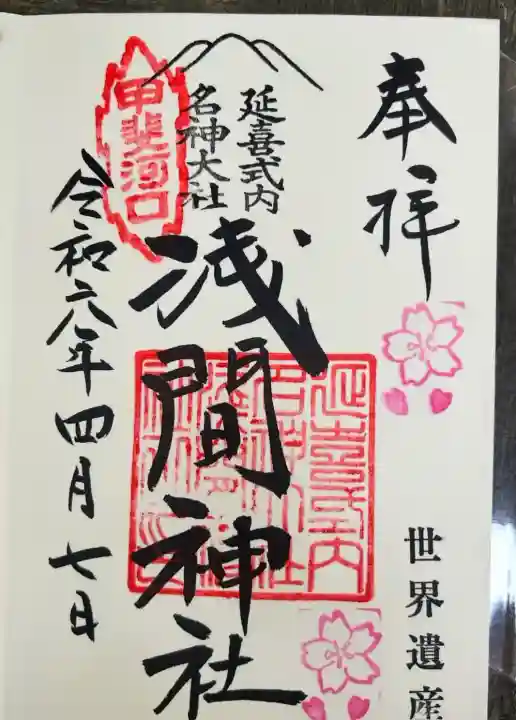 奉拝
世界遺産
延喜式内
名神大社
浅間神社
甲斐河口
令和六年四月七日